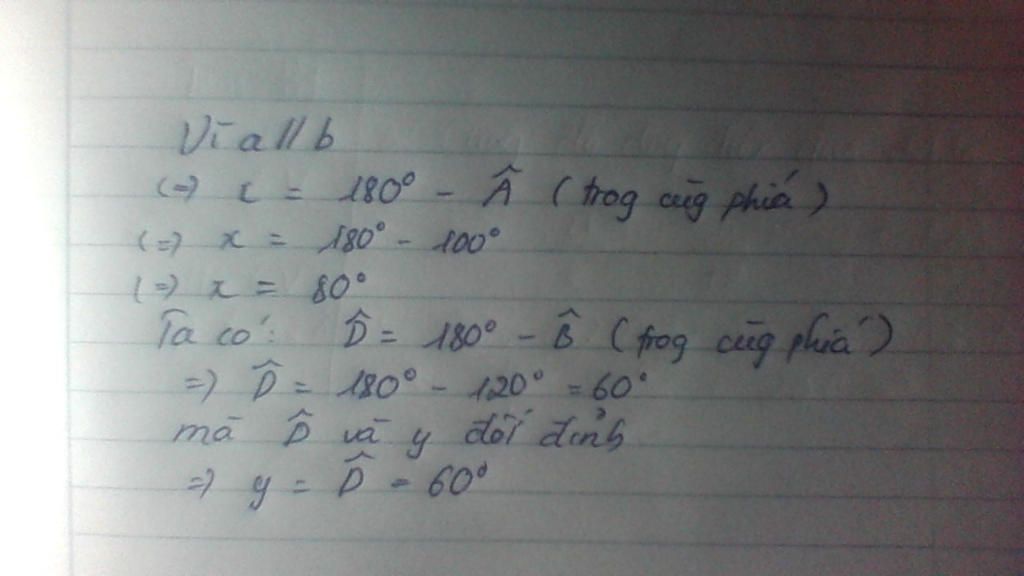 Vì a // b
(=) x = 180° - Â (trog cùg phiá)
(=) x = 180° - 100°
(=) x = 80°
Ta có: D̂ = 180° - B̂ (trog cùg phiá)
=) D̂ = 180° - 120° = 60°
mà D̂ và y đối đỉnh
=) y = D̂ = 60°